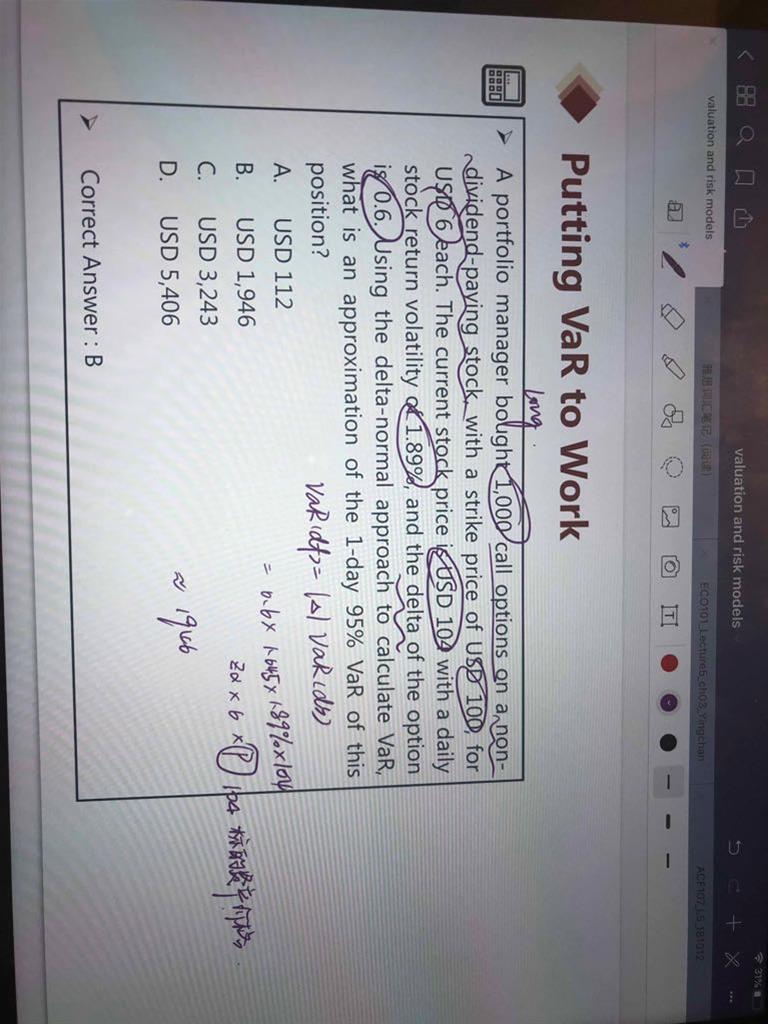 valuation and risk models
31%
valuation and risk models
雅思词汇笔记（阅读）
ECO101_Lecture5_ch03_Yingchan
ACF107_L5_181012
Putting VaR to Work
long
A portfolio manager bought 1,000 call options on a non-
dividend-paying stock, with a strike price of USD 100, for
USD 6 each. The current stock price is USD 104 with a daily
stock return volatility of 1.89%, and the delta of the option
is 0.6. Using the delta-normal approach to calculate VaR,
what is an approximation of the 1-day 95% VaR of this
position?
A. USD 112
B. USD 1,946
C. USD 3,243
D. USD 5,406
VaR(df) = |Δ| VaR(ds)
= 0.6 × 1.645 × 1.89% × 104
Zα × 6 × P 104 标的资产价格.
≈ 1946
Correct Answer : B